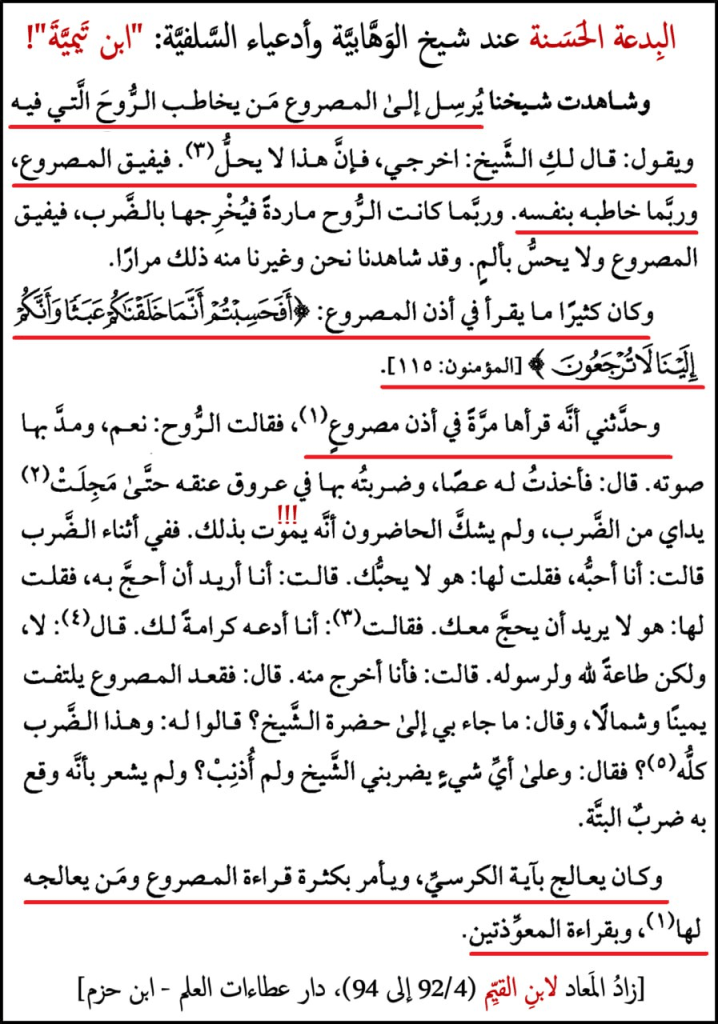 البِدعة الحَسَنة عند شيخ الوَهَّابيَّة وأدعياء السَّلفيَّة: "ابن تَيميَّةَ"!
وشاهدت شيخنا يُرسِل إلىٰ المصروع مَن يخاطب الرُّوحَ الَّتي فيه
ويقول: قال لكِ الشَّيخ: اخرجي، فإنَّ هذا لا يحلُّ(٣). فيفيق المصروع،
وربَّما خاطبه بنفسه. وربَّما كانت الرُّوح ماردةً فيُخْرِجها بالضَّرب، فيفيق
المصروع ولا يحسُّ بألمٍ. وقد شاهدنا نحن وغيرنا منه ذلك مرارًا.
وكان كثيرًا ما يقرأ في أذن المصروع: ﴿أَفَحَسِبْتُمْ أَنَّمَا خَلَقْنَاكُمْ عَبَثًا وَأَنَّكُمْ
إِلَيْنَا لَا تُرْجَعُونَ﴾ [المؤمنون: ١١٥].
وحدَّثني أنَّه قرأها مرَّةً في أذن مصروعٍ(١)، فقالت الرُّوح: نعم، ومدَّ بها
صوته. قال: فأخذتُ له عصًا، وضربتُه بها في عروق عنقه حتَّىٰ مَجِلَتْ(٢)
!!!
يداي من الضَّرب، ولم يشكَّ الحاضرون أنَّه يموت بذلك. ففي أثناء الضَّرب
قالت: أنا أحبُّه، فقلت لها: هو لا يحبُّك. قالت: أنا أريد أن أحجَّ به، فقلت
لها: هو لا يريد أن يحجَّ معك. فقالت(٣): أنا أدعه كرامةً لك. قال(٤): لا،
ولكن طاعةً لله ولرسوله. قالت: فأنا أخرج منه. قال: فقعد المصروع يلتفت
يمينًا وشمالًا، وقال: ما جاء بي إلىٰ حضرة الشَّيخ؟ قالوا له: وهذا الضَّرب
كلُّه(٥)؟ فقال: وعلىٰ أيِّ شيءٍ يضربني الشَّيخ ولم أُذنِبْ؟ ولم يشعر بأنَّه وقع
به ضربٌ البتَّة.
وكان يعالج بآية الكرسيِّ، ويأمر بكثرة قراءة المصروع ومَن يعالجه
لها(١)، وبقراءة المعوِّذتين.
[زادُ المَعاد لابنِ القيِّم (92/4 إلى 94)، دار عطاءات العلم - ابن حزم]